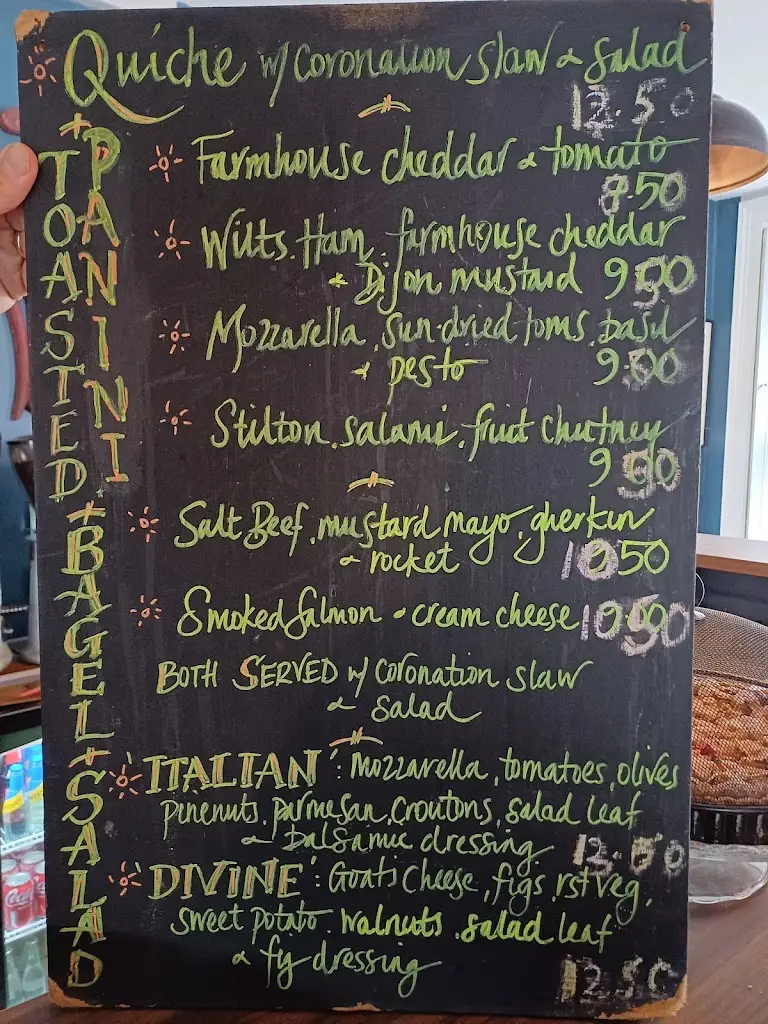 Quiche w/ Coronation Slaw & Salad
12.50
TOASTED
PANINI
Farmhouse cheddar & tomato
50
Wilts. Ham, farmhouse cheddar
& Dijon mustard 9.50
Mozzarella, sun-dried toms, basil
& pesto 9.50
Stilton, salami, fruit chutney
9.50
BAGEL
Salt Beef, mustard mayo, gherkin
& rocket 10.50
Smoked Salmon & cream cheese 10.50
BOTH SERVED w/ coronation slaw
& salad
SALAD
'ITALIAN': Mozzarella, tomatoes, olives
pinenuts, parmesan, croutons, salad leaf
& balsamic dressing
12.50
'DIVINE': Goats Cheese, figs, rst veg,
sweet potato, walnuts, salad leaf
& fig dressing
12.50